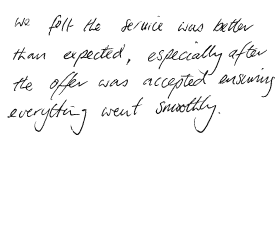 we felt the service was better
than expected, especially after
the offer was accepted ensuring
everything went smoothly.